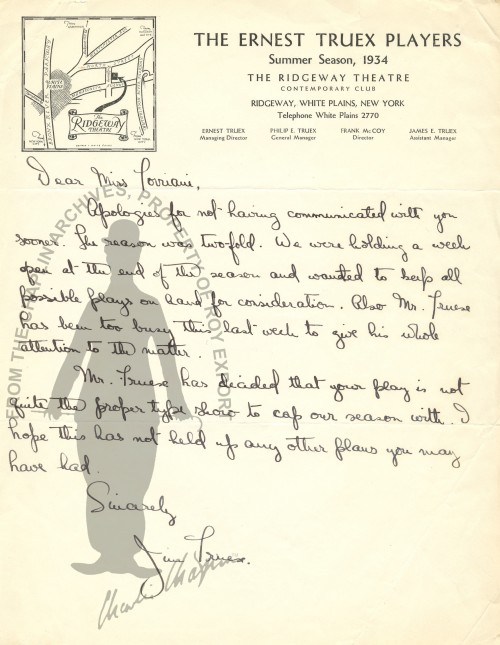 THE ERNEST TRUEX PLAYERS
Summer Season, 1934
THE RIDGEWAY THEATRE
CONTEMPORARY CLUB
RIDGEWAY, WHITE PLAINS, NEW YORK
Telephone White Plains 2770
ERNEST TRUEX PHILIP E. TRUEX FRANK McCOY JAMES E. TRUEX
Managing Director General Manager Director Assistant Manager
WHITE PLAINS
The RIDGEWAY THEATRE
Dear Miss
Apologies for not having communicated with you
sooner. The reason was two-fold. We were holding a week
open at the end of the season and wanted to keep all
possible plays on hand for consideration. Also Mr. Truex
has been too busy this last week to give his whole
attention to the matter.
Mr. Truex has decided that your play is not
quite the proper type show to cap our season with. I
hope this has not held up any other plans you may
have had.
Sincerely
Jim Truex.
FROM THE CHAPLIN ARCHIVES, PROPERTY OF ROY EXPORT
Charlie Chaplin